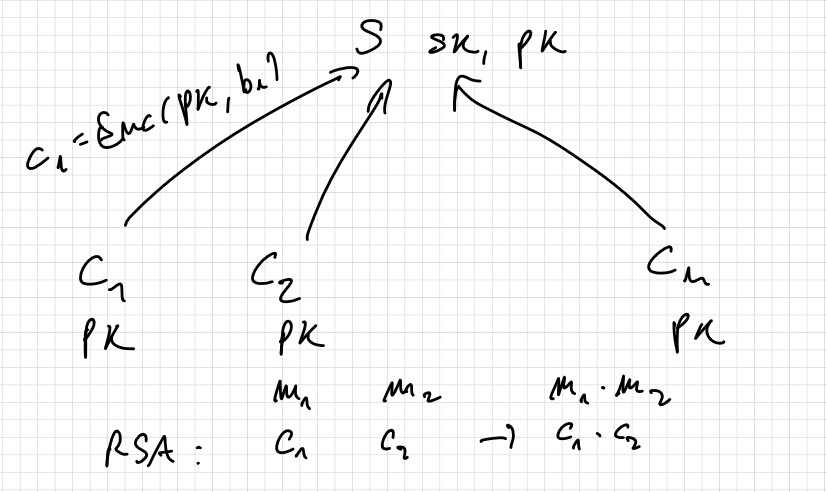 S sk, pk
c₁ = Enc(pk, b₁)
C₁ C₂ Cₙ
pk pk pk
m₁ m₂ m₁ · m₂
RSA : c₁ c₂ → c₁ · c₂